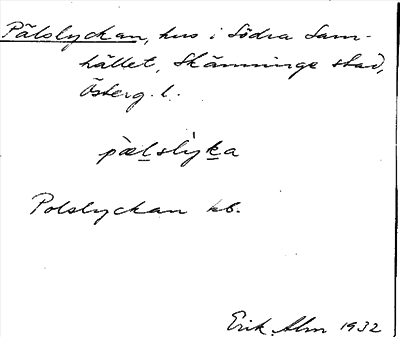 Pålslyckan, hus i Södra Sam-
hället, Skänninge stad,
Österg. l.
pålslýka
Polslyckan kb.
Erik Alm 1932